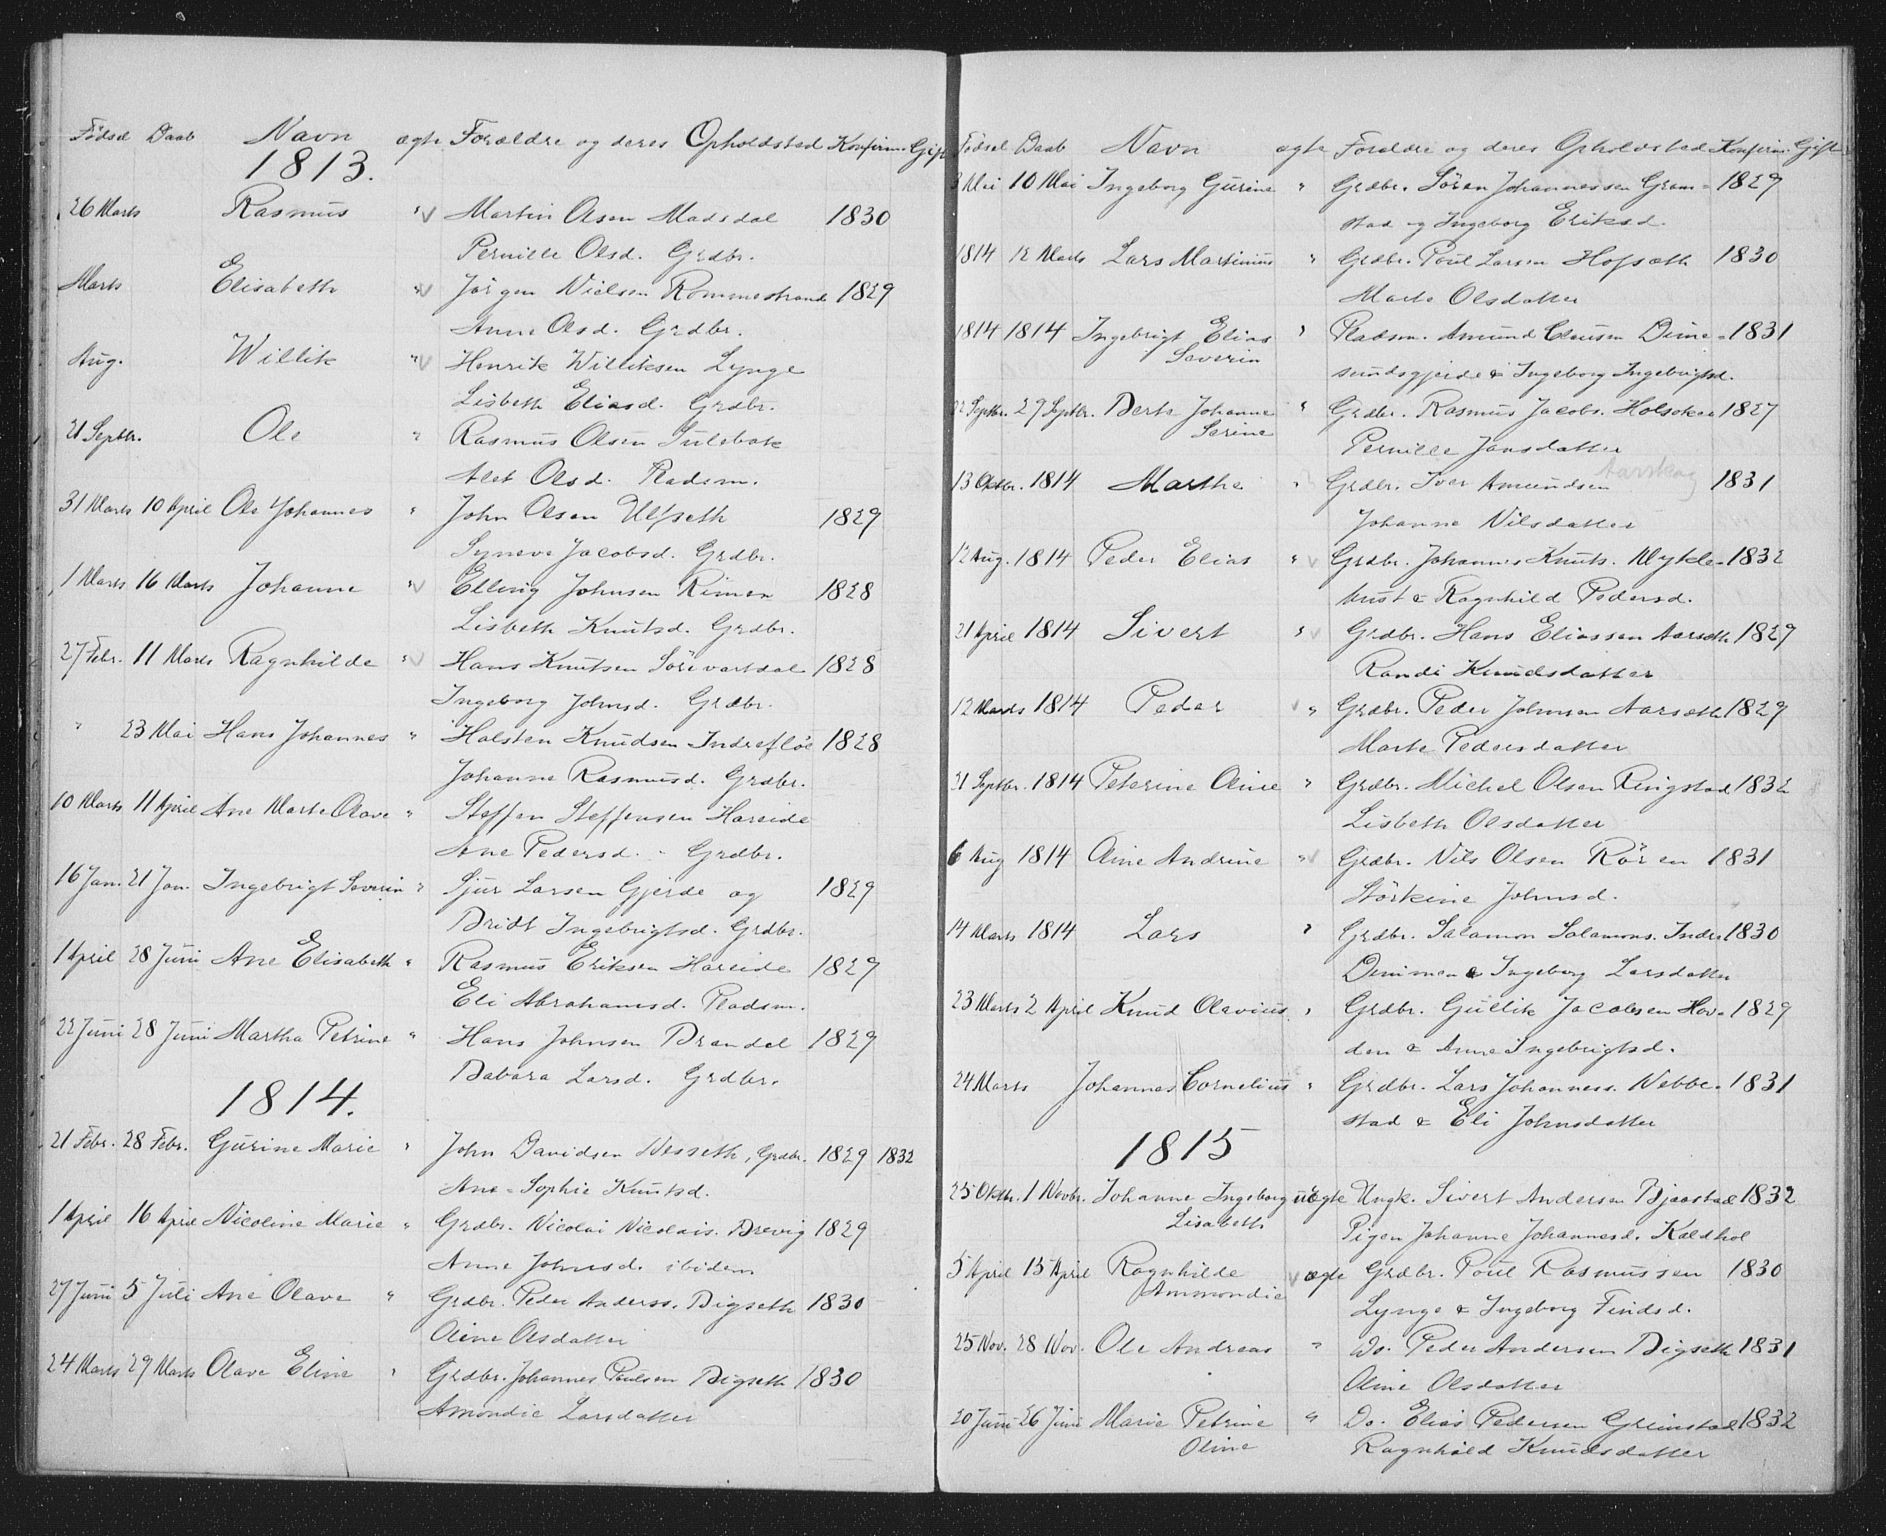 Fødsel Daab Navn ægte Forældre og deres Opholdsted Konfirm. Gift
1813.
26 Marts Rasmus " v Martin Olsen Madsdal 1830
Pernille Olsd. Grdbr.
Marts Elisabeth " v Jörgen Nielsen Rommestrand 1829
Anne Olsd. Grdbr.
Aug. Willik " v Henrik Williksen Lynge
Lisbeth Eliasd. Grdbr.
21 Septbr. Ole " Rasmus Olsen Sulebak
Alet Olsd. Pladsm.
31 Marts 10 April Ole Johannes " John Olsen Ulfseth 1829
Syneve Jacobsd. Grdbr.
1 Marts 16 Marts Johanne " v Elling Johnsen Rimen 1828
Lisbeth Knutsd. Grdbr.
27 Febr. 11 Marts Ragnhilde " v Hans Knutsen Sörevartdal 1828
Ingeborg Johnsd. Grdbr.
" 23 Mai Hans Johannes " Halsten Knudsen Indreflöe 1828
Johanne Rasmusd. Grdbr.
10 Marts 11 April Ane Marte Olave " Steffen Steffensen Hareide
Ane Pedersd. - Grdbr.
16 Jan. 21 Jan. Ingebrigt Severin " Sjur Larsen Gjerde og 1829
Bridt Ingebrigtsd. Grdbr.
1 April 28 Juni Ane Elisabeth " Rasmus Eriksen Hareide 1829
Eli Abrahamsd. Pladsm.
22 Juni 28 Juni Martha Petrine " Hans Johnsen Brandal 1829
Babara Larsd. Grdbr.
1814.
21 Febr. 28 Febr. Gurine Marie " John Davidsen Nesseth, Grdbr. 1829 1832
Ane-Sophie Knutsd.
1 April 16 April Nicoline Marie " Grdbr. Nicolai Nicolais. Brevig 1829
Anne Johnsd. ibidem
27 Juni 5 Juli Ane Olave " Grdbr. Peder Anderss. Bigseth 1830
Oline Olsdatter
24 Marts 29 Marts Olave Eline " Grdbr. Johannes Poulsen Bigseth 1830
Amondie Larsdatter
Födsel Daab Navn ægte Forældre og deres Opholdsted Konfirm. Gift
3 Mai 10 Mai Ingeborg Gurine " Grdbr. Sören Johannessen Gram- 1829
stad og Ingeborg Eriksd.
1814 12 Marts Lars Martinius " Grdbr. Poul Larsen Hofsæth 1830
Marte Olsdatter
1814 1814 Ingebrigt Elias " Pladsm. Amund Clausen Dime- 1831
Severin
sundsgjerde & Ingeborg Ingebrigtsd.
22 Septbr. 29 Septbr. Berte Johanne " Grdbr. Rasmus Jacobs. Holseker 1827
Serine
Pernille Jansdatter
Aarskog
13 Oktbr. 1814 Marthe " Grdbr. Iver Amundsen 1831
Johanne Nilsdatter
12 Aug. 1814 Peder Elias " v Grdbr. Johannes Knuts. Mykle- 1832
bust & Ragnhild Pedersd.
21 April 1814 Sivert " v Grdbr. Hans Eliassen Aarseth 1829
Randi Knudsdatter
12 Marts 1814 Peder v " Grdbr. Peder Johnsen Aarseth 1829
Marte Pedersdatter
21 Septbr. 1814 Peterine Oline " Grdbr. Michel Olsen Ringstad 1832
Lisbeth Olsdatter
6 Aug 1814 Oline Andrine " v Grdbr. Nils Olsen Rören 1831
Störkine Johnsd.
14 Marts 1814 Lars " Grdbr. Salamon Salamons. Indre 1830
Dimmen & Ingeborg Larsdatter
23 Marts 2 April Knud Olavius " Grdbr. Gullik Jacobsen Hov- 1829
den & Anne Ingebrigtsd.
24 Marts Johannes Cornelius " Grdbr. Lars Johanness. Nebbe- 1831
stad & Eli Johnsdatter
1815
25 Oktbr. 1 Novbr. Johanne Ingeborg uægte Ungk. Sivert Andersen Bjaastad 1832
Lisabeth
Pigen Johanne Johannesd. Kaldhol
5 April 15 April Ragnhilde v ægte Grdbr. Poul Rasmussen 1830
Ammondie
Lynge & Ingeborg Findsd.
25 Nov. 28 Nov. Ole Andreas " Do. Peder Andersen Bigseth 1831
Oline Olsdatter
20 Juni 26 Juni Marie Petrine " Do. Elias Pedersen Grimstad 1832
Oline
Ragnhild Knudsdatter